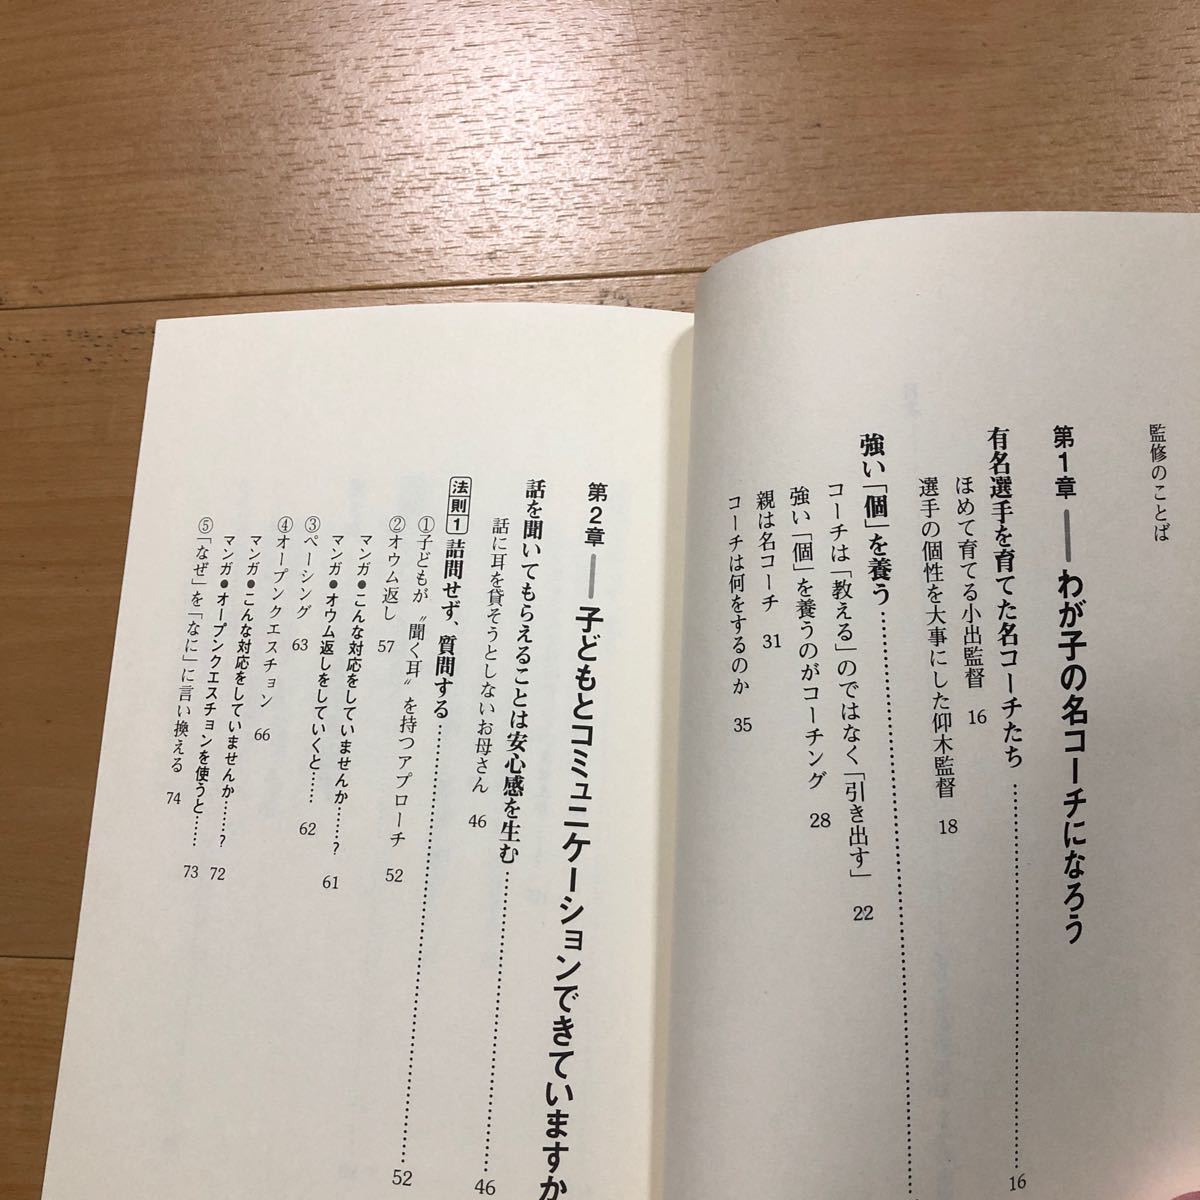 監修のことば
第1章──わが子の名コーチになろう
有名選手を育てた名コーチたち……………………………16
ほめて育てる小出監督 16
選手の個性を大事にした仰木監督 18
強い「個」を養う……………………………
コーチは「教える」のではなく「引き出す」 22
強い「個」を養うのがコーチング 28
親は名コーチ 31
コーチは何をするのか 35
第2章──子どもとコミュニケーションできていますか
話を聞いてもらえることは安心感を生む……………………………46
話に耳を貸そうとしないお母さん 46
法則1 詰問せず、質問する……………………………52
①子どもが〝聞く耳〟を持つアプローチ 52
②オウム返し 57
マンガ●こんな対応をしていませんか……？ 61
マンガ●オウム返しをしていくと…… 62
③ペーシング 63
④オープンクエスチョン 66
マンガ●こんな対応をしていませんか……？ 72
マンガ●オープンクエスチョンを使うと…… 73
⑤「なぜ」を「なに」に言い換える 74